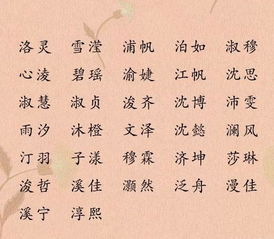 洛灵 雪滢 浦帆 泊如 淑穆
心凌 碧瑶 渝婕 江帆 沈思
淑慧 淑贞 浚齐 沈博 沛雯
雨汐 沐橙 文泽 沈懿 澜风
汀羽 子漾 穆霖 济坤 莎琳
浚哲 溪佳 灏然 泛舟 漫佳
溪宁 淳熙